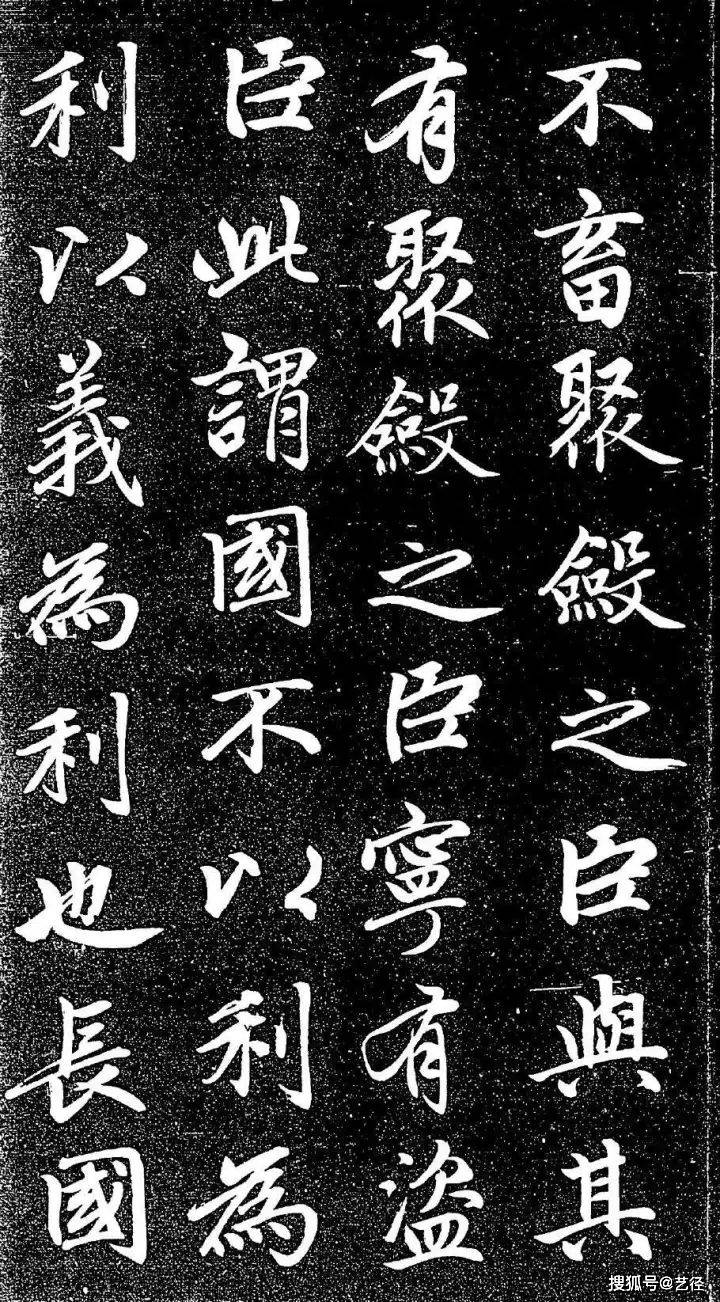 不畜聚斂之臣與其
有聚斂之臣寧有盜
臣此謂國不以利為
利以義為利也長國
搜狐号@艺径